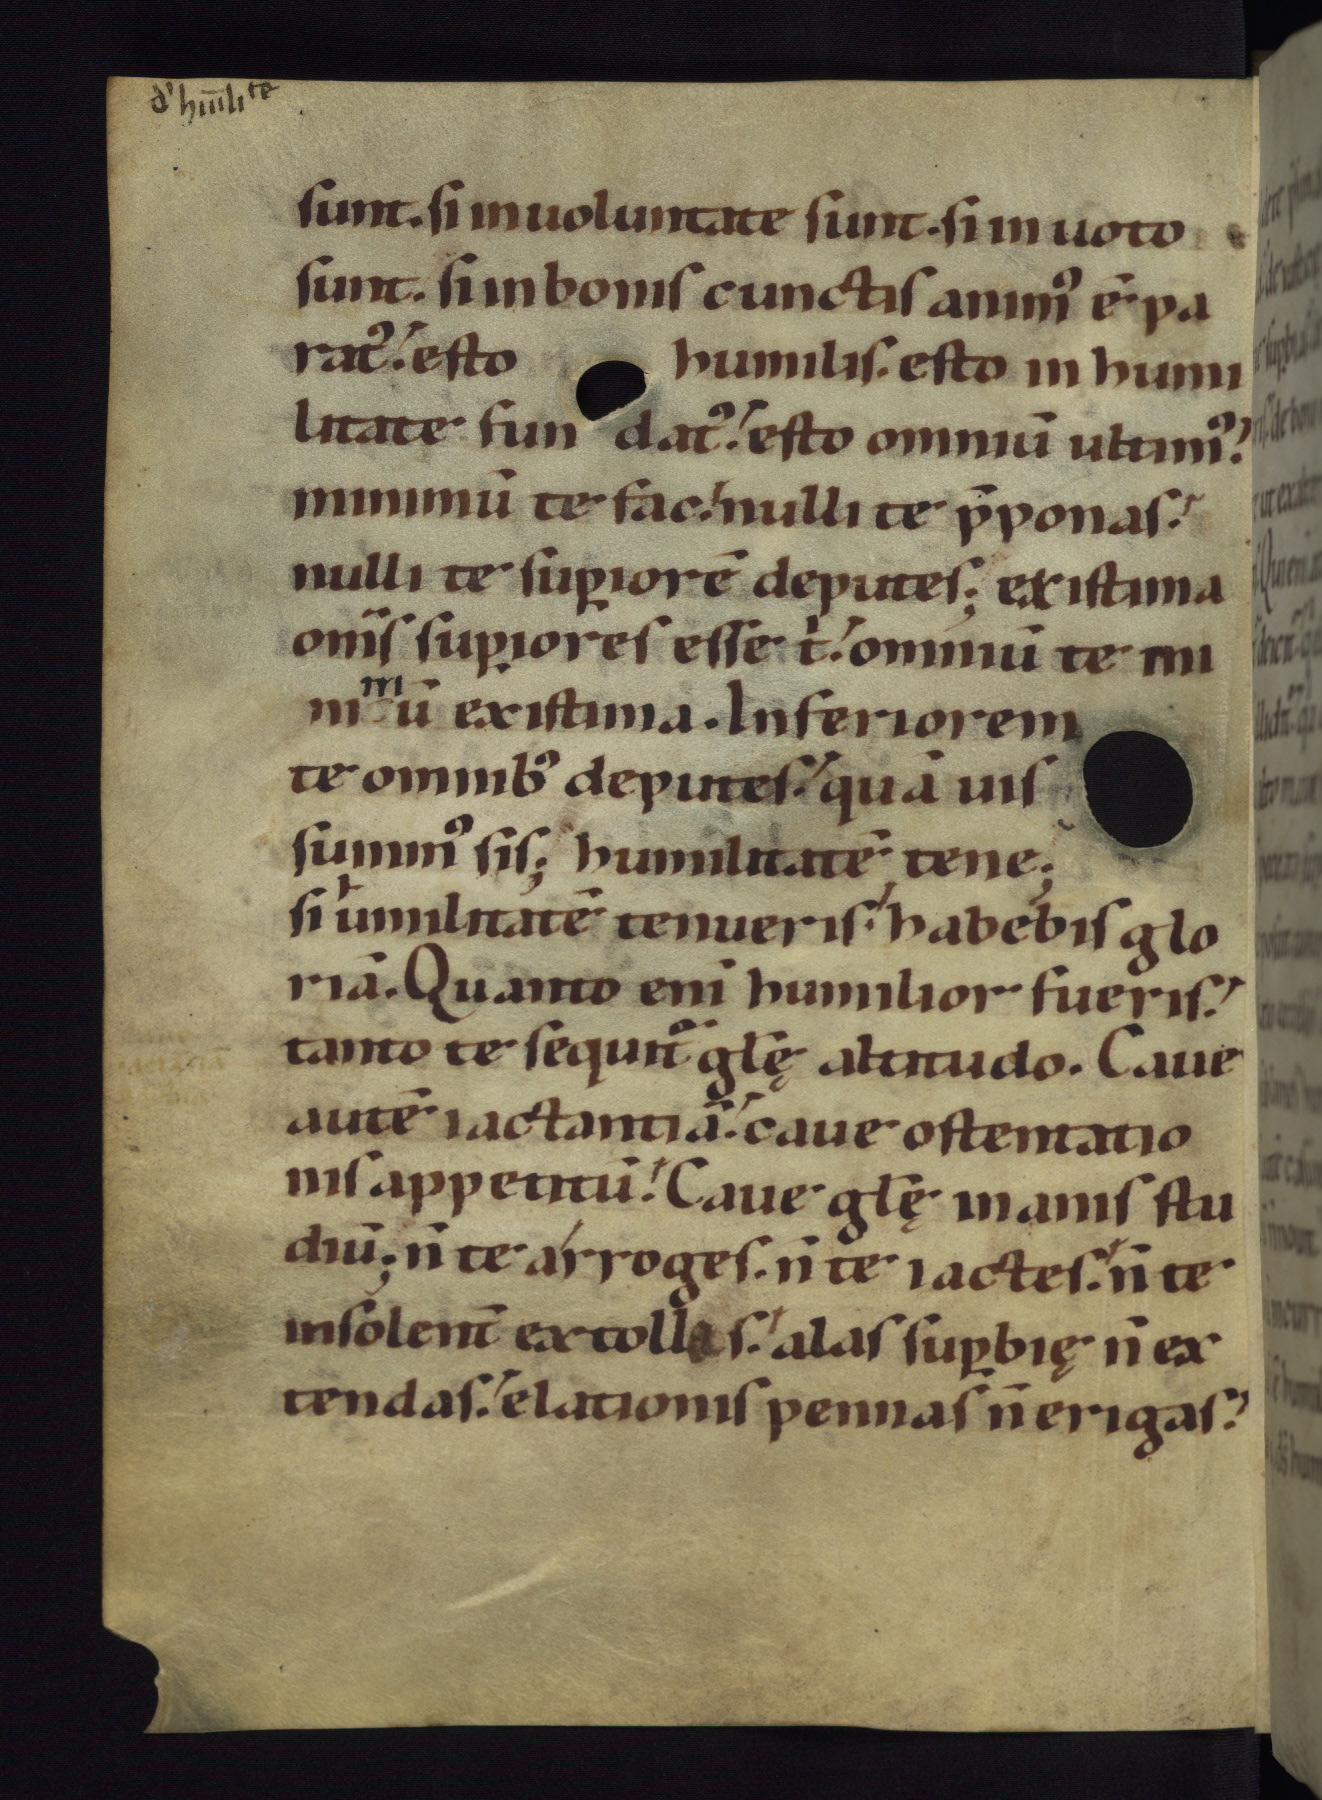 d' huīlite
sunt. si in uoluntate sunt. si in uoto
sunt. si in bonis cunctis animꝰ ē pa
ratꝰ. esto humilis. esto in humi
litate fun datꝰ. esto omniū ultimꝰ.
minimū te fac. nulli te p̄ponas.
nulli te supiorē deputes; existima
om̄s supiores esse t̄. omniū te mi
nimū existima. Inferiorem
te omnibꝰ deputes. quāuis
summꝰ sis; humilitatē tene;
si humilitatē tenueris. habebis glo
riā. Quanto eni humilior fueris.
tanto te sequit᷑ gl̄ę altitudo. Caue
autē iactantiā. caue ostentatio
nis appetitū. Caue gl̄ę inanis stu
diū; n̄ te arroges. n̄ te iactes. n̄ te
insolent̄ extollas. alas suꝑbię n̄ ex
tendas. elationis pennas n̄ erigas.